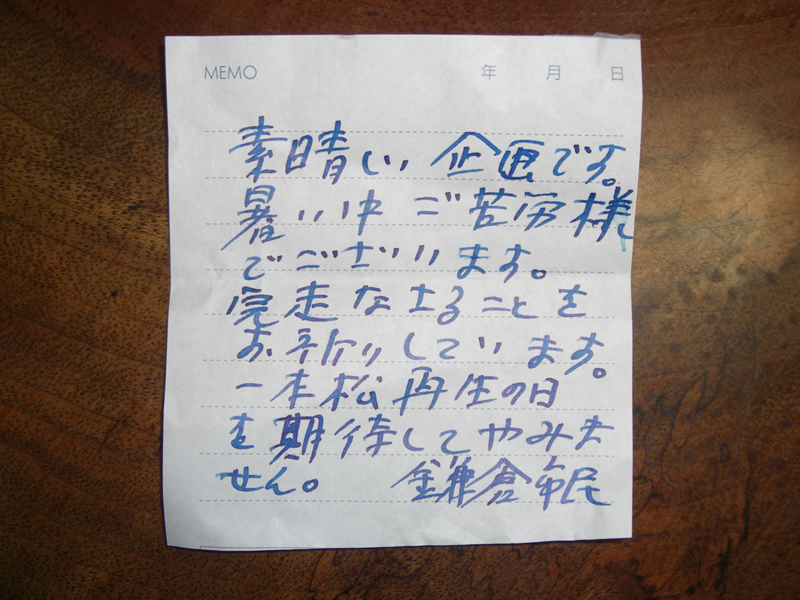 MEMO 年 月 日
素晴しい企画です。
暑い中ご苦労様
でございます。
完走なさることを
お祈りしています。
一本松再生の日
を期待してやみま
せん。 鎌倉市民